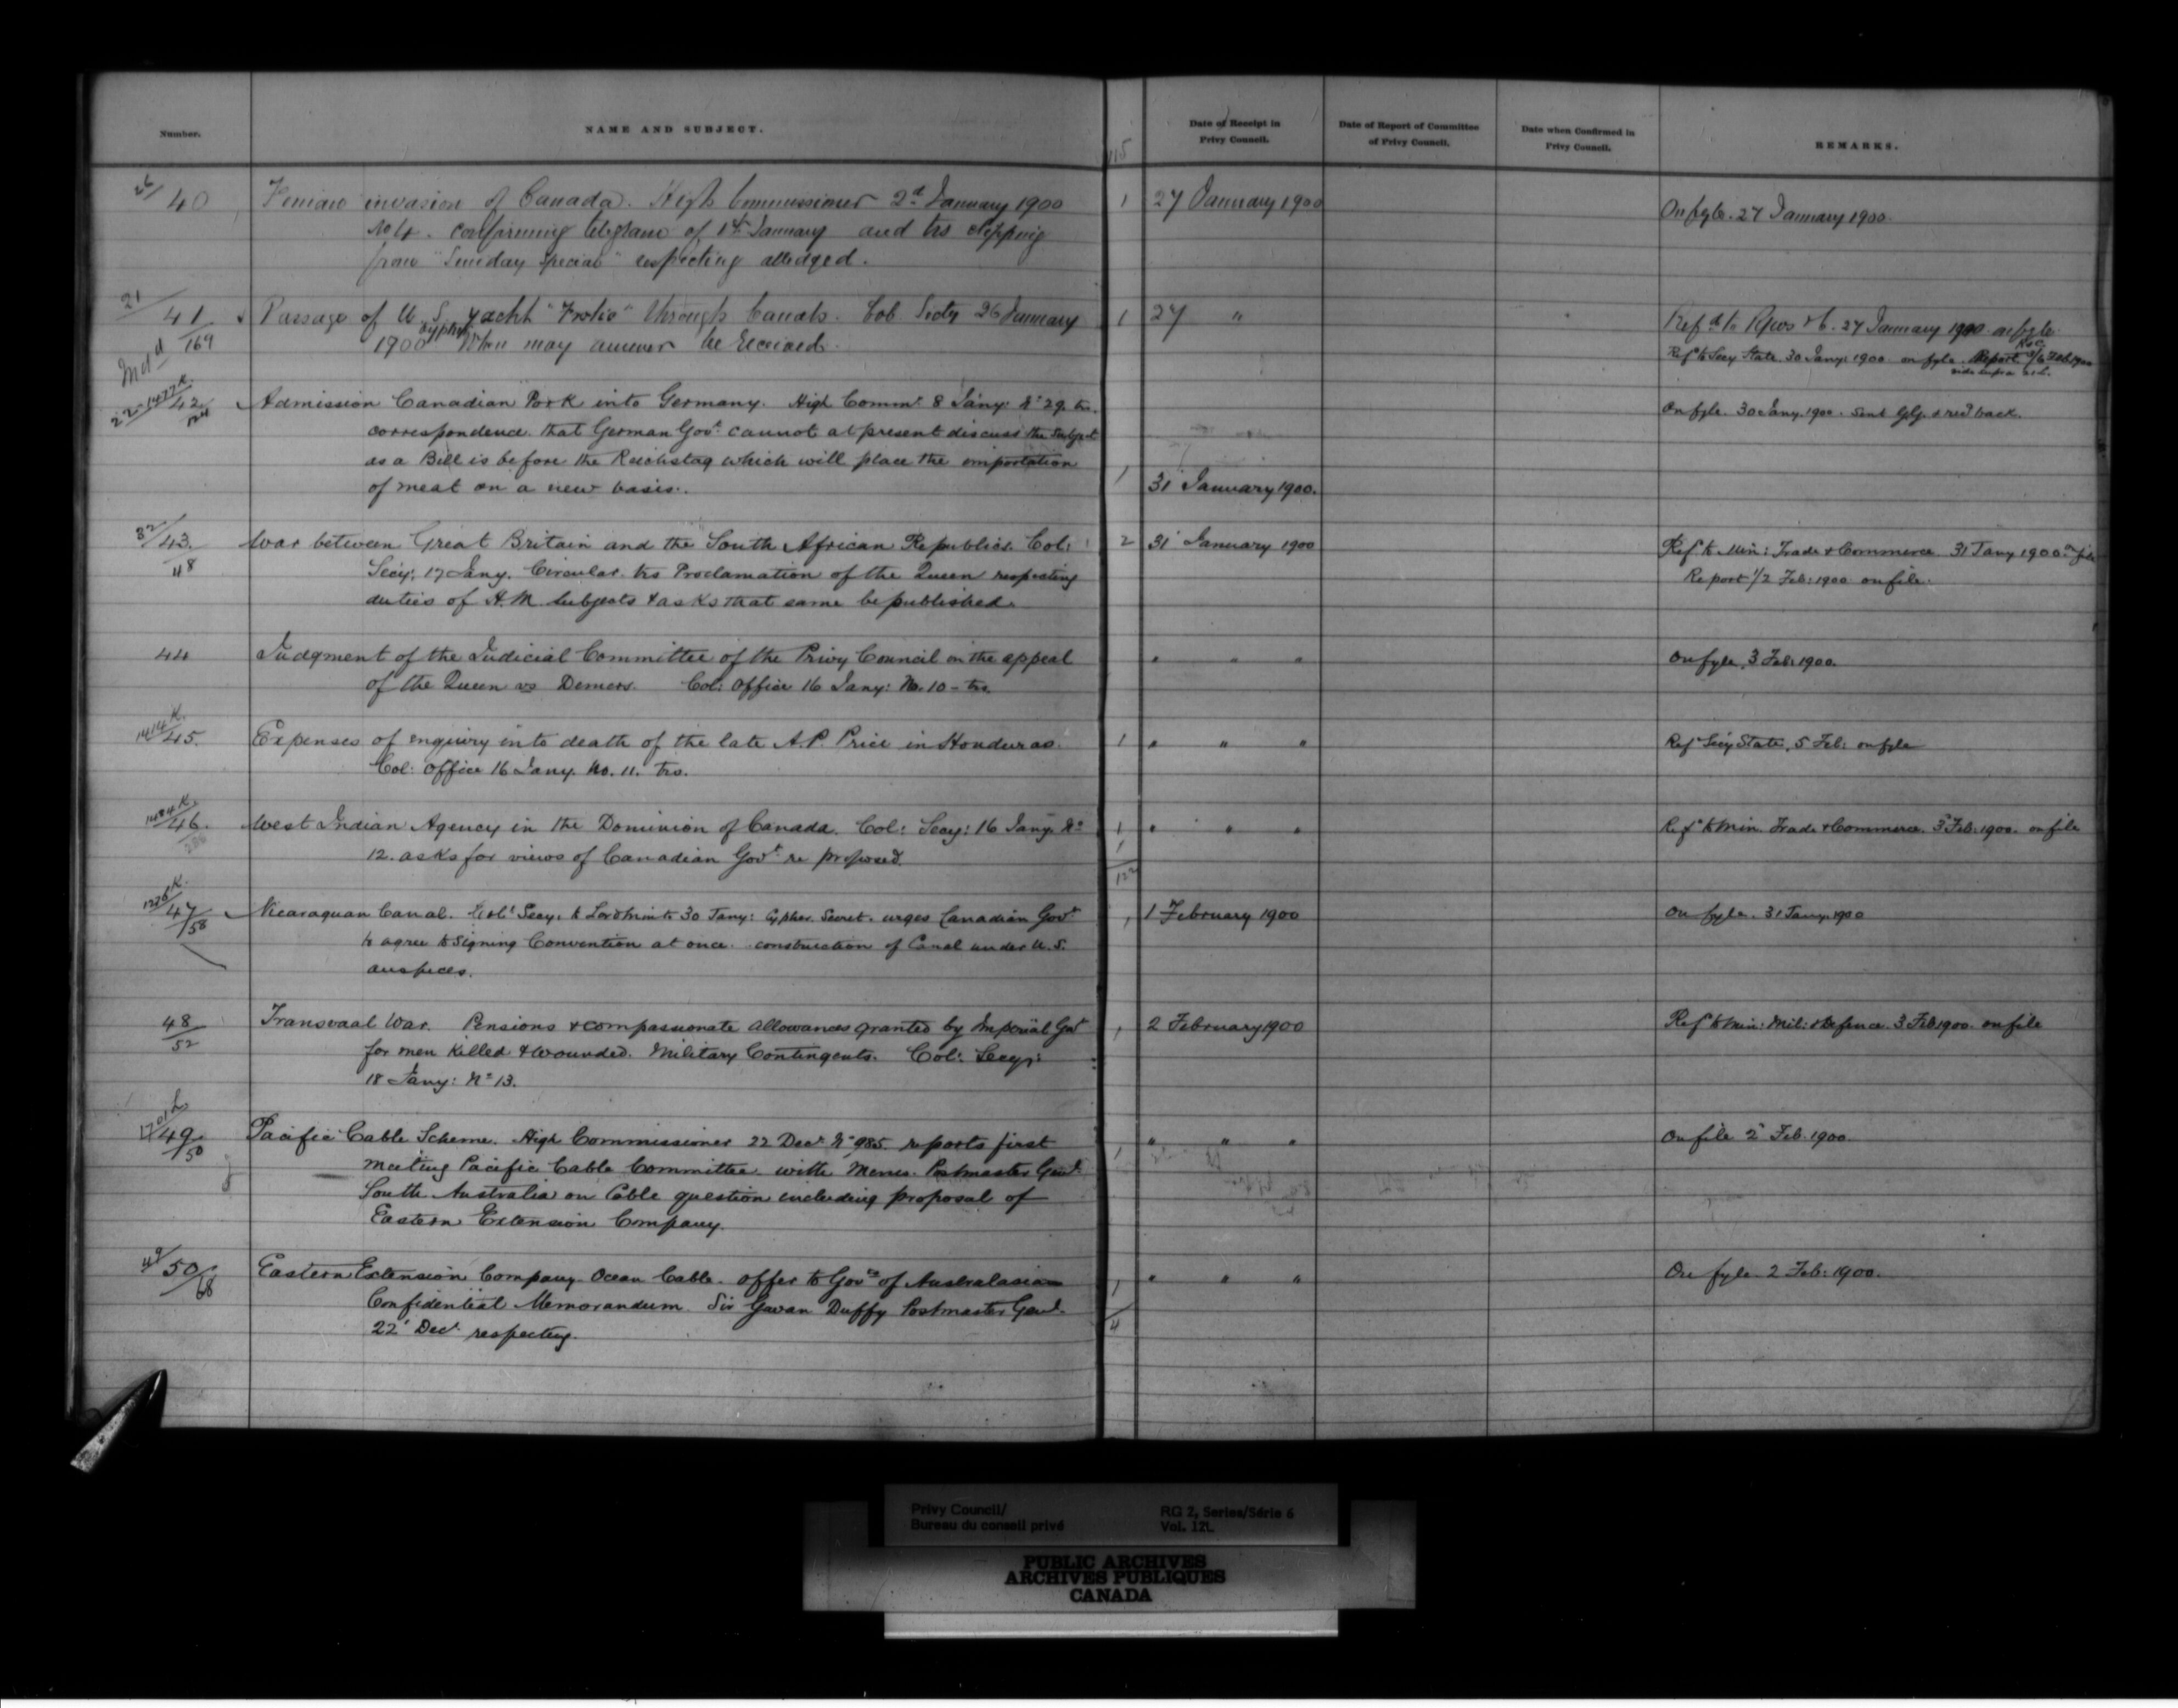 Number.
NAME AND SUBJECT.
115
Date of Receipt in
Privy Council.
Date of Report of Committee
of Privy Council.
Date when Confirmed in
Privy Council.
REMARKS.
26/40
Fenian invasion of Canada. High Commissioner 2d January 1900
1
27 January 1900
On fyle. 27 January 1900.
No 4. confirming telegram of 1st January and trs clipping
from "Sunday Special" respecting alledged.
21/41/169
Passage of U. S. yacht "Frolic" through Canals. Col Secty 26 January
1
27 "
Refd to Rys & C. 27 January 1900 on fyle
1900 cypher When may answer be received.
Ref to Secy State 30 Jany: 1900 on fyle. Report 2/6 Feb 1900
22-1477K./42
Admission Canadian Pork into Germany. High Commr 8 Jany: No 29. trs.
On fyle. 30 Jany. 1900. Sent G.G. & recd back.
correspondence. that German Govt. cannot at present discuss the subject
as a Bill is before the Reichstag which will place the importation
of meat on a new basis.
1
31 January 1900.
32/43./48
War between Great Britain and the South African Republics. Col:
2
31 January 1900
Ref to Min: Trade & Commerce 31 Jany 1900 on file
Secy: 17 Jany. Circular. trs Proclamation of the Queen respecting
Report 1/2 Feb: 1900 on file.
duties of H.M. Subjects & asks that same be published.
44
Judgment of the Judicial Committee of the Privy Council in the appeal
" " "
On fyle. 3 Feb: 1900.
of the Queen vs Demers. Col: Office 16 Jany: No. 10 - trs.
1414K./45.
Expenses of enquiry into death of the late A.P. Price in Honduras.
1
" " "
Ref Secy State. 5 Feb: on fyle
Col: Office 16 Jany. No. 11. trs.
1484K./46.
West Indian Agency in the Dominion of Canada. Col: Secy: 16 Jany No
1
" " "
Ref to Min. Trade & Commerce. 3 Feb: 1900. on file
12. asks for views of Canadian Govt. re proposed.
1
122
1226K./47/58
Nicaraguan Canal. Coll Secy. to Lord Minto 30 Jany: Cypher. Secret. urges Canadian Govt
1
1 February 1900
On fyle. 31 Jany 1900
to agree to signing Convention at once. construction of Canal under U.S.
auspices.
48/52
Transvaal War. Pensions & compassionate allowances granted by Imperial Govt
1
2 February 1900
Ref to Min: Mil: & Defence. 3 Feb 1900. on file
for men killed & wounded. Military Contingents. Col: Secy:
18 Jany: No 13.
1701L/49/50
Pacific Cable Scheme. High Commissioner 22 Decr No 985. reports first
1
" " "
On file 2 Feb. 1900.
meeting Pacific Cable Committee with Memo. Postmaster Genl.
South Australia on Cable question including proposal of
Eastern Extension Company.
49/50/68
Eastern Extension Company. Ocean Cable. offer to Govts of Australasian
1
" " "
On fyle 2 Feb: 1900.
Confidential Memorandum. Sir Gavan Duffy Postmaster Genl.
4
22 Decr. respecting.
Privy Council/
Bureau du conseil privé
RG 2, Series/Série 6
Vol. 121.
PUBLIC ARCHIVES
ARCHIVES PUBLIQUES
CANADA